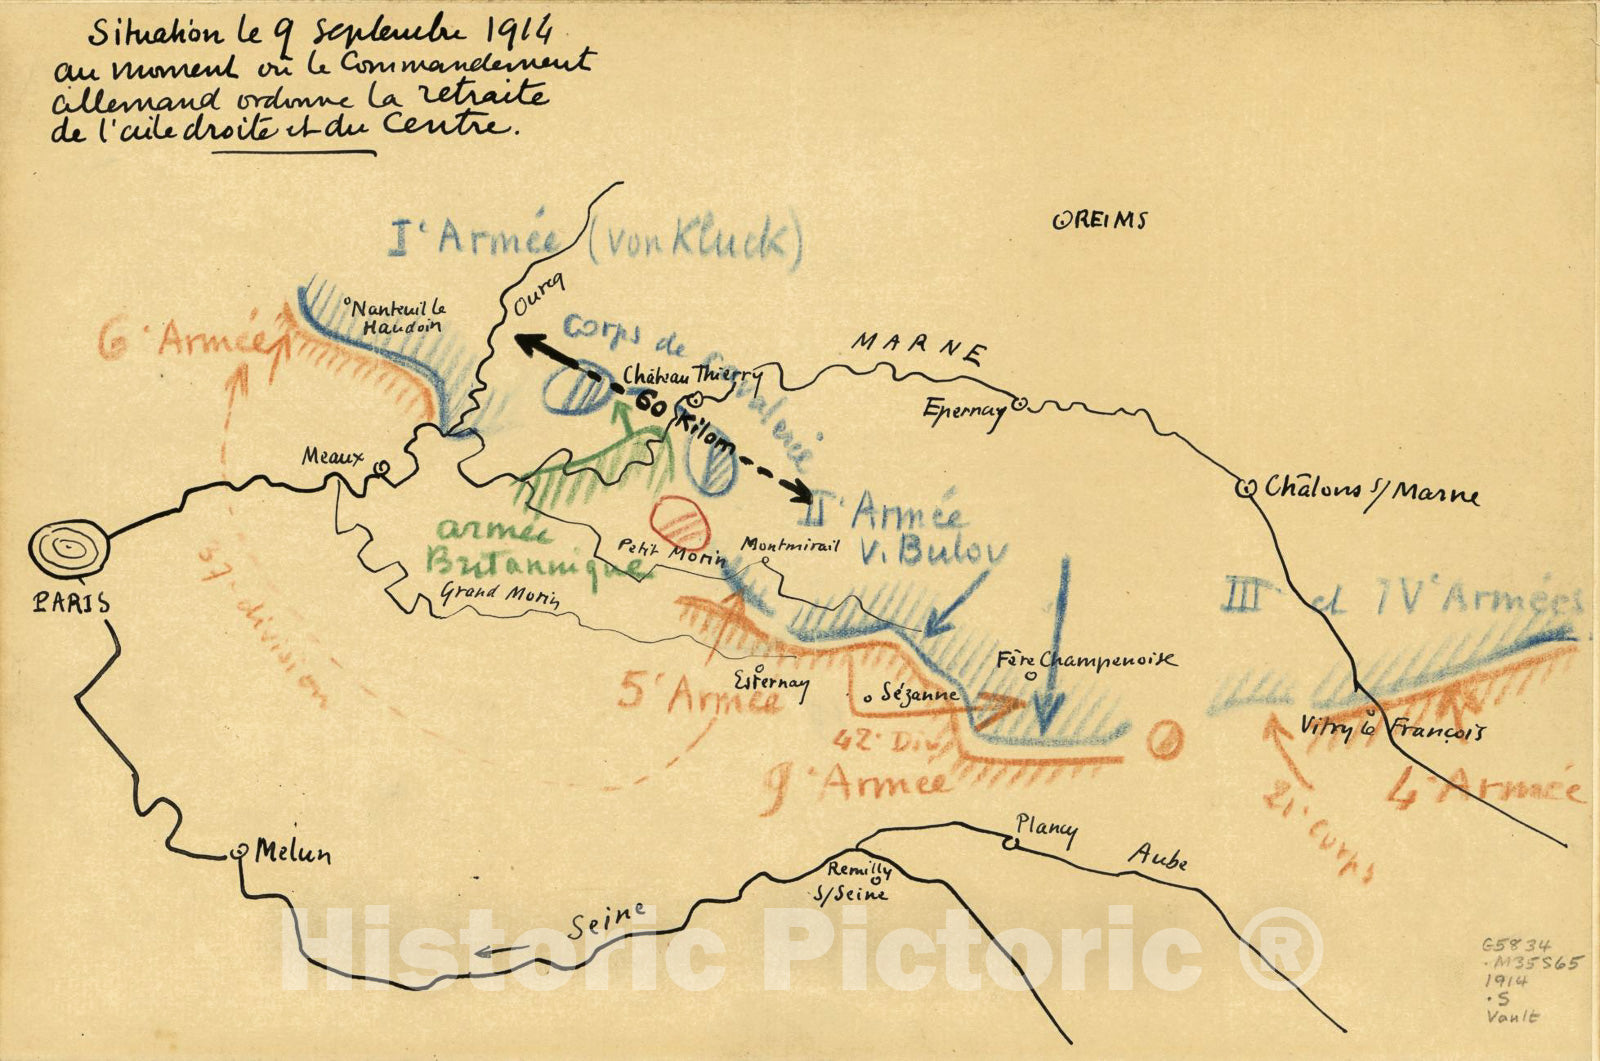 Situation le 9 Septembre 1914
au moment où le Commandement
allemand ordonne la retraite
de l'aile droite et du Centre.
REIMS
Ie Armée (von Kluck)
Ourcq
Nanteuil le
Haudoin
6e Armée
Corps de Cavalerie
MARNE
Château Thierry
60 Kilom
Epernay
Meaux
Châlons s/ Marne
IIe Armée
v. Bulov
armée
Britannique
Petit Morin
Montmirail
PARIS
Grand Morin
37e division
III et IVe Armées
Fère Champenoise
Esternay
5e Armée
Sézanne
42e Div.
9e Armée
Vitry le François
21e Corps
4e Armée
Plancy
Aube
Melun
Remilly
S/Seine
Seine
Historic Pictoric ®
G5834
.M35S65
1914
.S
Vault